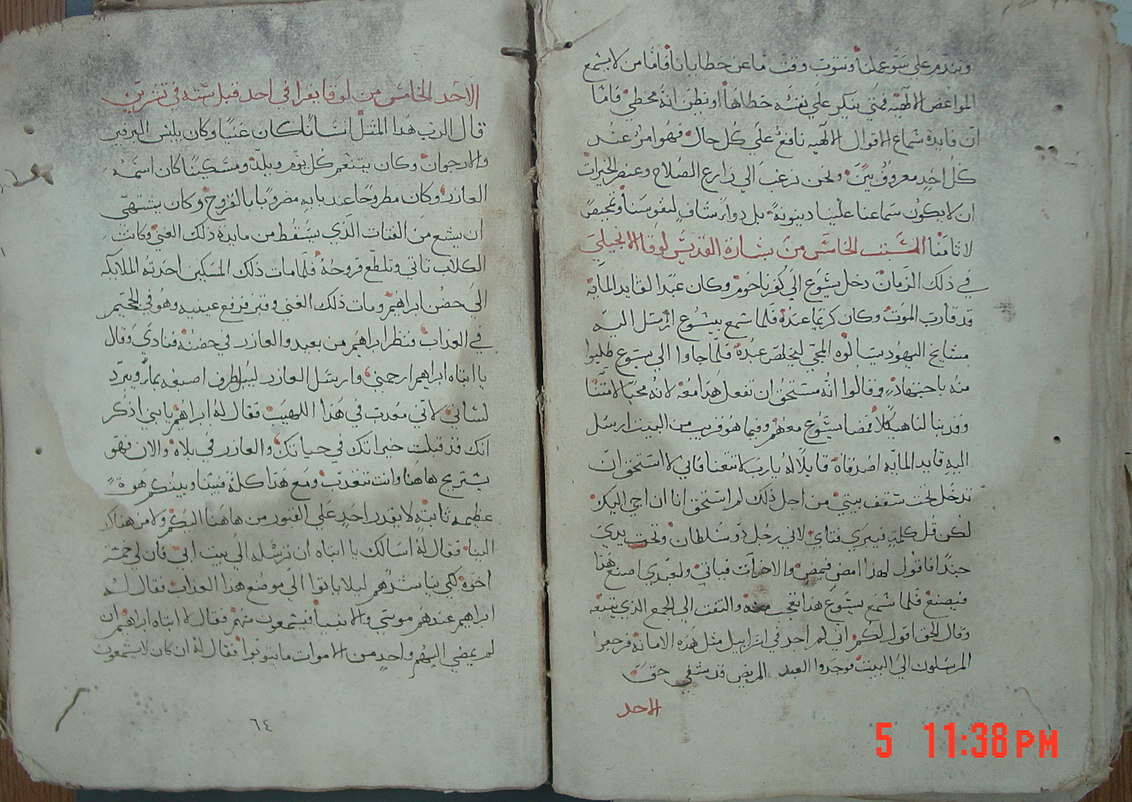 ويندم على سو عمله وسوف وقت ما عن خطايانا فاما من لا يسمع
المواعض الالهيه فمتى يبكر علي نفسه خطاها او يظن انه مخطي فاما
ان فايدة سماع الاقوال الالهيه نافع علي كل حال فهو امر عند
كل احد معروف بين ونحن نرغب الى زارع الصلاح وعنصر الخيرات
ان لا يكون سماعنا علينا دينونة بل دوا شاف لنفوسنا وتمحيص
لاثامنا السبت الخامس من بشارة القديس لوقا الانجيلي
في ذلك الزمان دخل يسوع الى كفرناحوم وكان عبد القايد المايه
قد قارب الموت وكان كريما عنده فلما سمع بيسوع ارسل اليه
مشايخ اليهود يسالوه المجي ليخلص عبده فلما جاوا الي يسوع طلبوا
منه باجتهاد وقالوا انه مستحق ان تفعل هذا معه لانه محبا لامتنا
وقد بنا لنا هيكلا فمضا يسوع معهم وفيما هو قريب من البيت ارسل
اليه قايد المايه اصدقاه قايلا له يارب لا تتعنا فاني لا استحق ان
تدخل تحت سقف بيتي من اجل ذلك لم استحق انا ان اجي اليك
لكن قل كلمة فيبرى فتاي لاني رجل ذو سلطان وتحت يدي
جندا فاقول لهذا امض فيمض والاخر ات فياتي ولعبدي اصنع هذا
فيصنع فلما سمع يسوع هذا تعجب منه والتفت الى الجمع الذي يتبعه
وقال الحق اقول لكم اني لم اجد في اسراييل مثل هذه الامانه فرجعوا
المرسلون الى البيت فوجدوا العبد المريض قد شفي حق
الاحد
الاحد الخامس من لوقا يقرا في احد قبل سته في تشرين
قال الرب هذا المثل انسانا كان غنيا وكان يلبس البرفير
والارجوان وكان يتنعم كل يوم ويلذ ومسكينا كان اسمه
العازر وكان مطروحا عند بابه مضروبا بالقروح وكان يشتهي
ان يشبع من الفتات الذي يسقط من مايدة ذلك الغني وكانت
الكلاب تاتي وتلطع قروحه فلما مات ذلك المسكين اخدته الملايكه
الى حضن ابراهيم ومات ذلك الغني وقبر فرفع عينيه وهو في الجحيم
في العداب فنظر ابراهيم من بعيد والعازر في حضنه فنادى وقال
يا ابتاه ابراهيم ارحمني وارسل العازر ليبل طرف اصبعه بما ويبرد
لساني لاني معدب في هدا اللهيب فقال له ابراهيم يابني اذكر
انك قد قبلت خيراتك في حياتك والعازر في بلاه والان فهو
يستريح هاهنا وانت تتعدب ومع هذا كله فبيننا وبينكم هوة
عظيمه ثابته لا يقدر احد على العبور من هاهنا اليكم ولا من هناك
الينا فقال له اسالك يا ابتاه ان ترسله الى بيت ابي فان لي خمسة
اخوة لكي يناشدهم ليلا ياتوا الي موضع هذا العداب فقال له
ابراهيم عندهم موسى والانبيا فيسمعون منهم فقال لا ابتاه ابراهيم ان
لم يمضي اليهم واحد من الاموات ما يتوبوا فقال له ان كان لا يسمعون
٦٤
5 11:38 PM